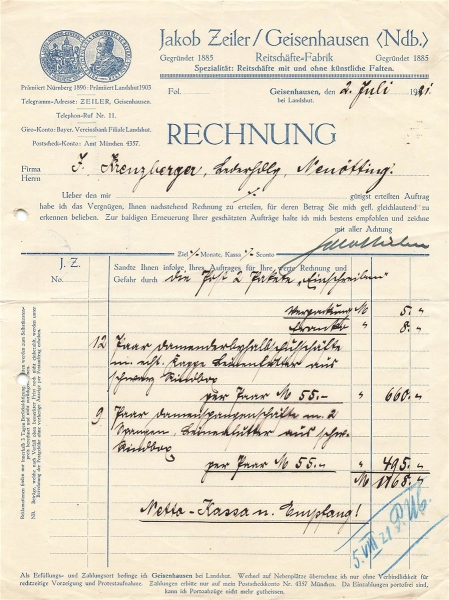 Jakob Zeiler/Geisenhausen (Ndb.)
Gegründet 1885 Reitschäfte-Fabrik Gegründet 1885
Spezialität: Reitschäfte mit und ohne künstliche Falten.
Prämiiert Nürnberg 1896 Prämiiert Landshut 1903
Telegramm-Adresse: ZEILER, Geisenhausen.
Telephon-Ruf Nr. 11.
Giro-Konto: Bayer. Vereinsbank Filiale Landshut.
Postscheck-Konto: Amt München 4357.
Fol. Geisenhausen, den 2. Juli 1921.
bei Landshut.
RECHNUNG
Firma J. Kreuzberger, Lederhdlg, Neuötting.
Herrn
Ueber den mir gütigst erteilten Auftrag
habe ich das Vergnügen, Ihnen nachstehend Rechnung zu erteilen, für deren Betrag Sie mich gefl. gleichlautend zu
erkennen belieben. Zur baldigen Erneuerung Ihrer geschätzten Aufträge halte ich mich bestens empfohlen und zeichne
mit aller Achtung
Ziel Monate, Kassa Sconto
J. Z.
No.
Sandte Ihnen infolge Ihres Auftrages für Ihre werte Rechnung und
Gefahr durch die Post 2 Pakete „Einschreiben"
Verpackung M 5. "
Franko " 8. "
12 Paar Damenderbyhalbschuhschäfte
m. echt. Kappe Leinenfutter aus
schwarz Rindbox
per Paar M 55.- " 660. "
9 Paar Damenspangenschäfte m. 2
Spangen, Leinenfutter aus schw.
Rindbox
per Paar M 55.- " 495. "
M 1168. "
Netto-Kassa n. Empfang!
5. VIII 21
Als Erfüllungs- und Zahlungsort bedinge ich Geisenhausen bei Landshut. Wechsel auf Nebenplätze übernehme ich nur ohne Verbindlichkeit für
rechtzeitige Vorzeigung und Protestaufnahme. Zahlungen erbitte nur auf mein Postscheckkonto Nr. 4357 München. Da Einzahlungen portofrei sind,
kann ich Portoabzüge nicht mehr gutheissen.